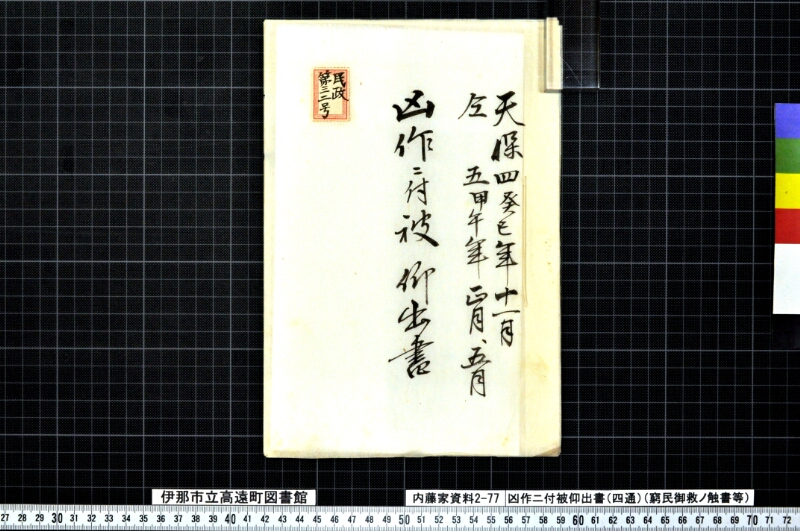 天保四癸巳年十一月
仝 五甲午年 正月、五月
凶作ニ付被 仰出書
民政
第三二号
伊那市立高遠町図書館
内藤家資料2-77 凶作ニ付被仰出書(四通)(窮民御救ノ触書等)
27 28 29 30 31 32 33 34 35 36 37 38 39 40 41 42 43 44 45 46 47 48 49 50 51 52 53 54 55 56 57 58 59 60 61 62 63 64 65 66 67 68 69 70 71 72